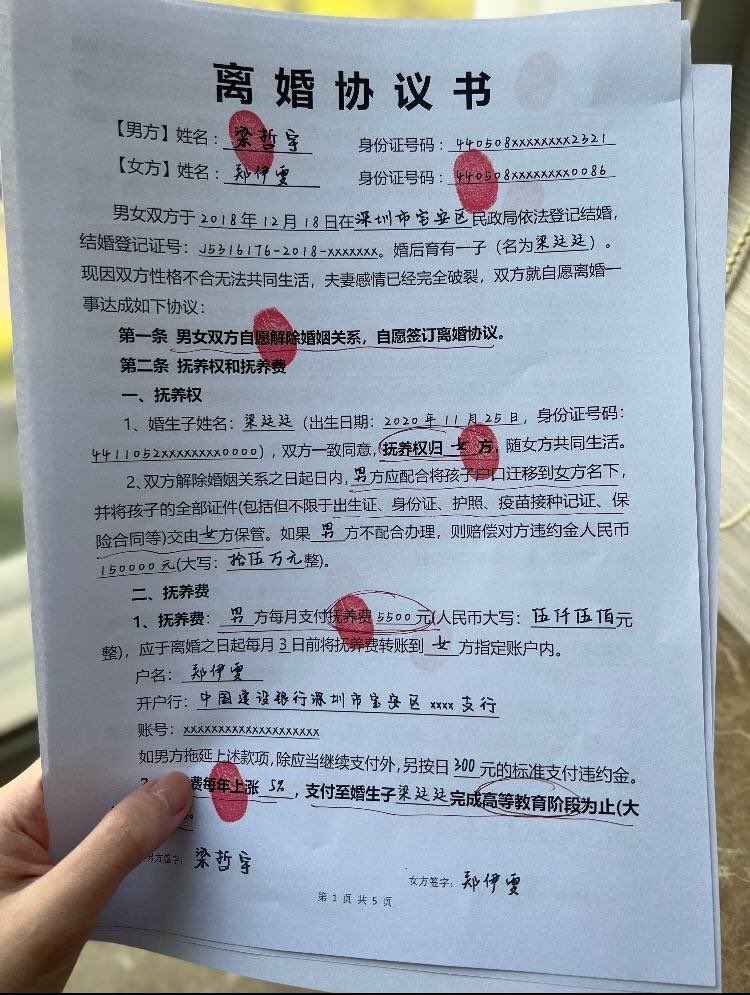 离婚协议书
【男方】姓名：梁哲宇 身份证号码：440508xxxxxxxx2321
【女方】姓名：郑伊雯 身份证号码：440508xxxxxxxx0086
男女双方于2018年12月18日在深圳市宝安区民政局依法登记结婚，
结婚登记证号：J5316176-2018-xxxxxxx。婚后育有一子（名为梁廷廷）。
现因双方性格不合无法共同生活，夫妻感情已经完全破裂，双方就自愿离婚一
事达成如下协议：
第一条 男女双方自愿解除婚姻关系，自愿签订离婚协议。
第二条 抚养权和抚养费
一、抚养权
1、婚生子姓名：梁廷廷（出生日期：2020年11月25日，身份证号码：
4411052xxxxxxxx0000），双方一致同意，抚养权归女方，随女方共同生活。
2、双方解除婚姻关系之日起日内，男方应配合将孩子户口迁移到女方名下，
并将孩子的全部证件(包括但不限于出生证、身份证、护照、疫苗接种记证、保
险合同等)交由女方保管。如果男方不配合办理，则赔偿对方违约金人民币
150000元(大写：拾伍万元整)。
二、抚养费
1、抚养费：男方每月支付抚养费5500元(人民币大写：伍仟伍佰元
整)，应于离婚之日起每月3日前将抚养费转账到女方指定账户内。
户名：郑伊雯
开户行：中国建设银行深圳市宝安区xxxx支行
账号：xxxxxxxxxxxxxxxxxxx
如男方拖延上述款项，除应当继续支付外，另按日300元的标准支付违约金。
费每年上涨5%，支付至婚生子梁廷廷完成高等教育阶段为止(大
。
男方签字：梁哲宇
女方签字：郑伊雯
第1页共5页